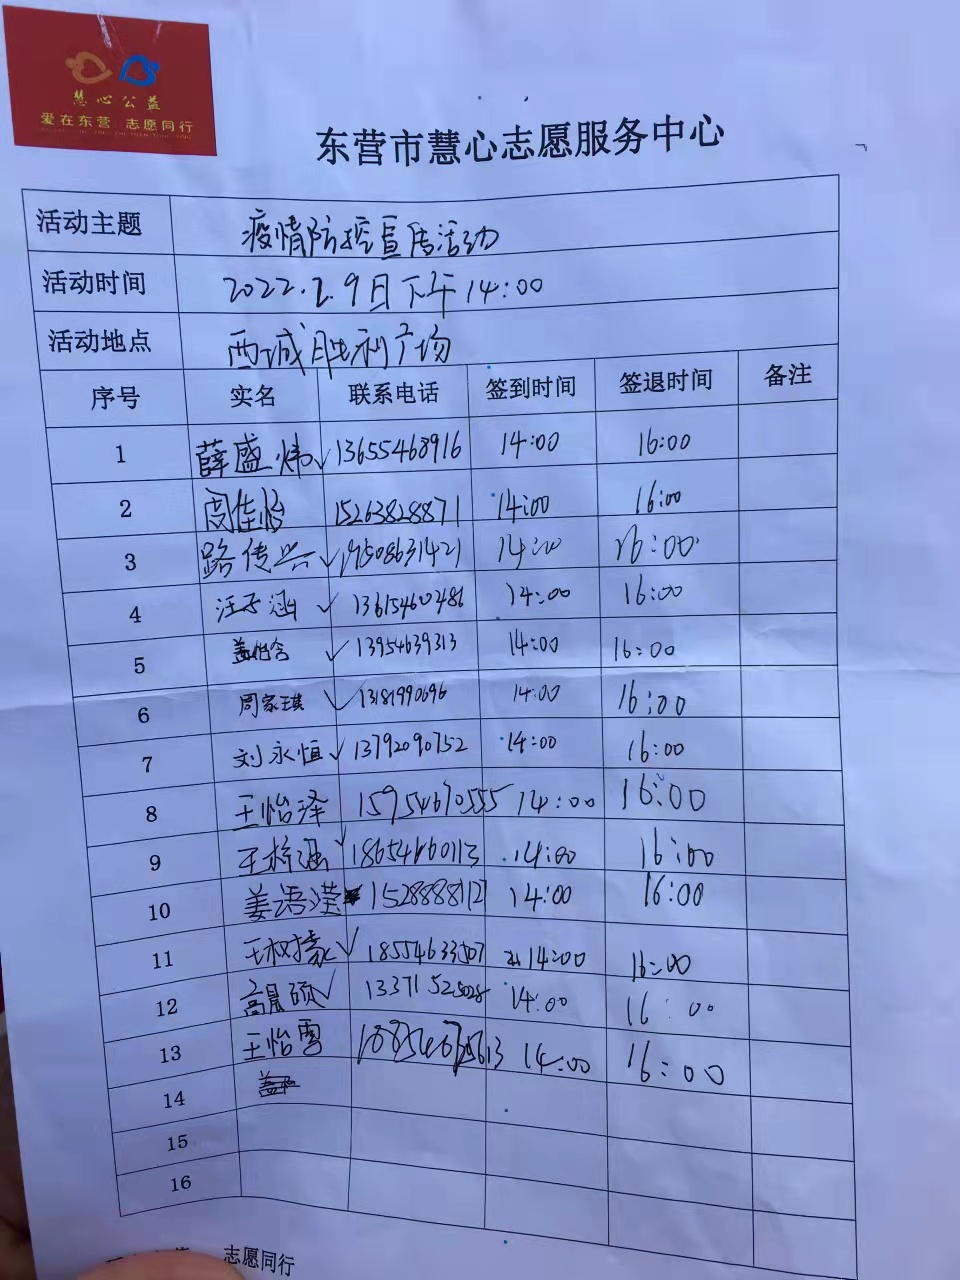 慧心公益
爱在东营 志愿同行
东营市慧心志愿服务中心
活动主题 疫情防控宣传活动
活动时间 2022.2.9日下午14:00
活动地点 西城胜利广场
序号 实名 联系电话 签到时间 签退时间 备注
1 薛盛炜 13655468916 14:00 16:00
2 周佳怡 15263828871 14:00 16:00
3 路传兴 19508631421 14:00 16:00
4 汪子涵 13615460486 14:00 16:00
5 盖怡含 13954639313 14:00 16:00
6 周家琪 14:00 16:00
7 刘永恒 13792090752 14:00 16:00
8 王怡泽 15954670555 14:00 16:00
9 王梓涵 14:00 16:00
10 姜语滢 14:00 16:00
11 18554633507 14:00 16:00
12 高晨硕 13371525028 14:00 16:00
13 王怡雪 14:00 16:00
14
15
16
志愿同行